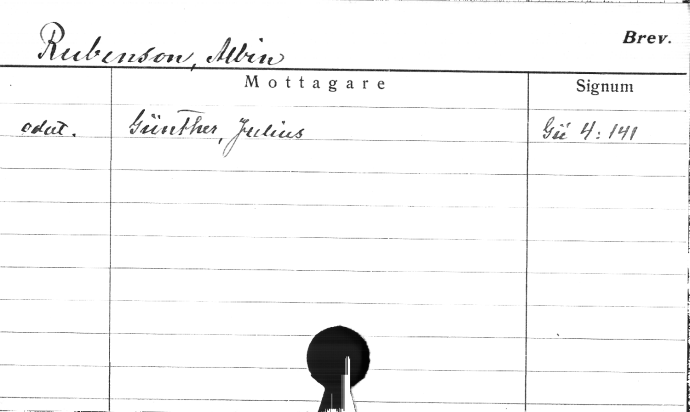 Rubenson, Albin
Brev.
Mottagare
Signum
odat.
Günther, Julius
Gü 4:141